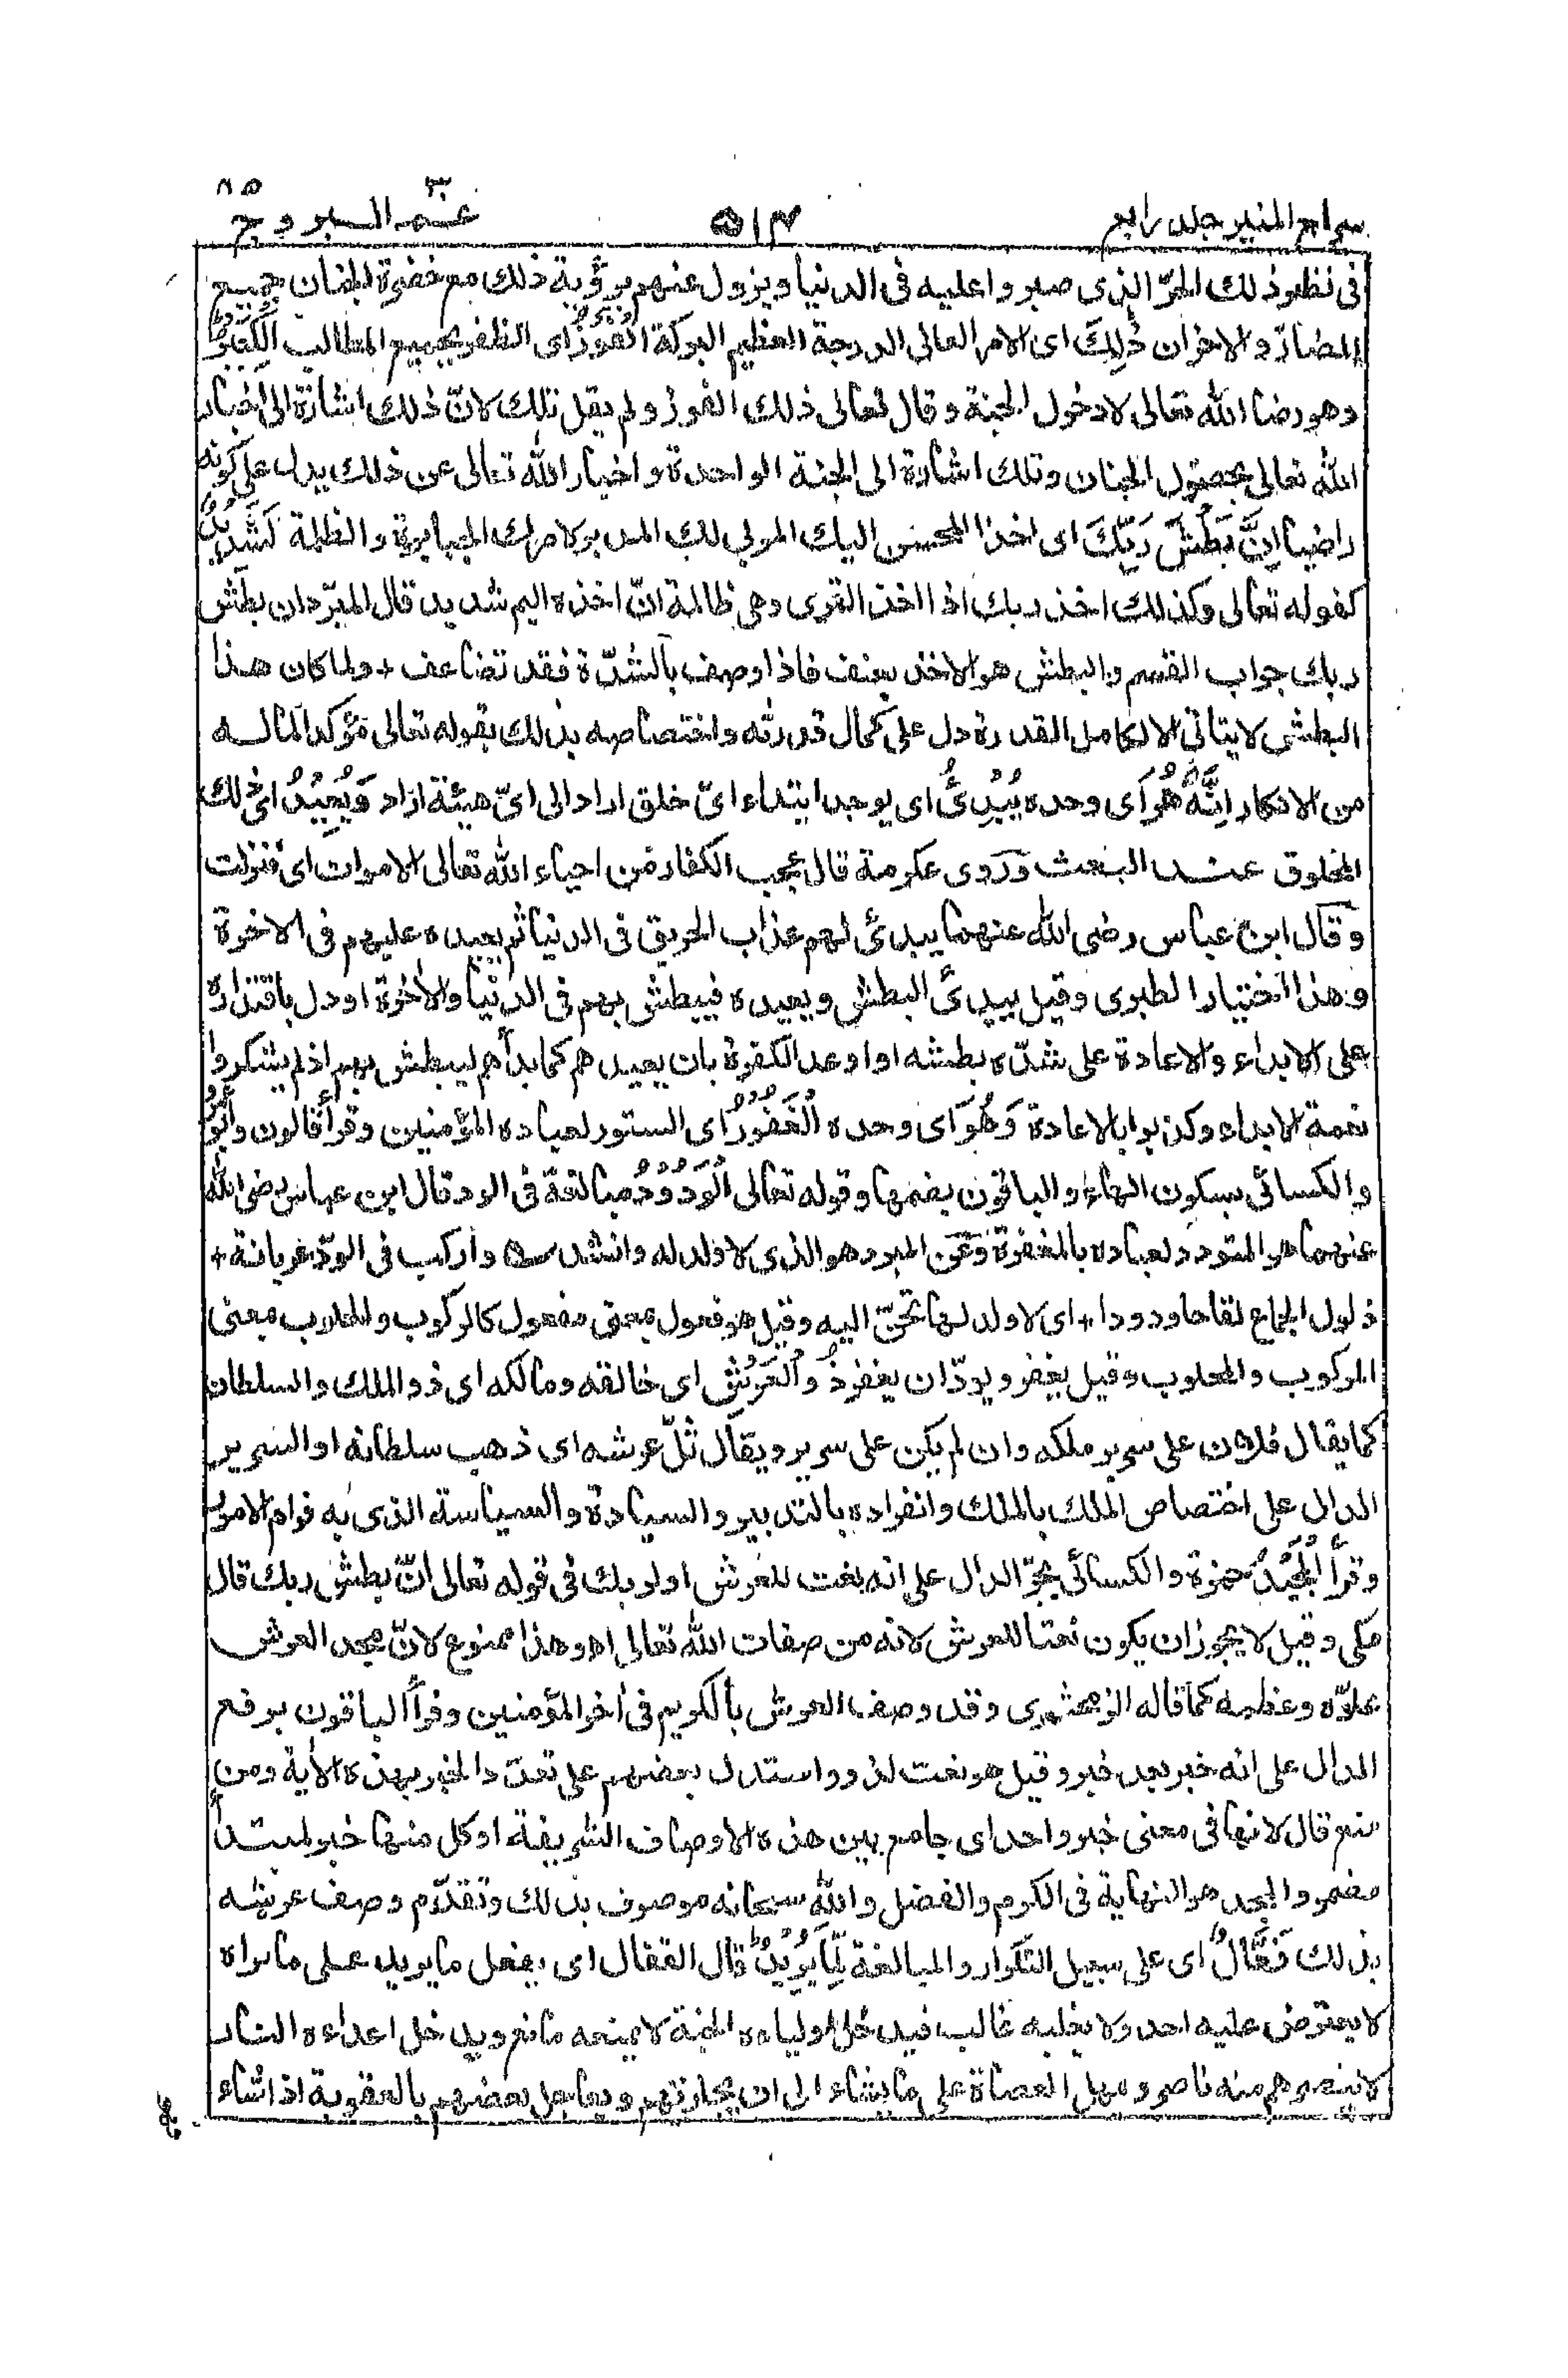 سراج المنير جلد رابع ٥١٣ عمّ ٣٠ البروج ٨٥
فى نظير ذلك الحرّ الذى صبروا عليه فى الدنيا ويزول عنهم برؤية ذلك مع خضرة الجنان جميع
المضارّ والاحزان ذٰلِكَ اى الامر العالى الدرجة العظيم البركة الْفَوْزُ اى الظفر بجميع المطالب الْكَبِيْرُ
وهو رضا الله تعالى لا دخول الجنة وقال تعالى ذلك الفوز ولم يقل تلك لانّ ذلك اشارة الى اخبار
الله تعالى بحصول الجنان وتلك اشارة الى الجنة الواحدة واخبار الله تعالى عن ذلك يدل على كونه
راضيا اِنَّ بَطْشَ رَبِّكَ اى اخذ المحسن اليك المربي لك المدبر لامرك الجبابرة والظلمة لَشَدِيْدٌ
كقوله تعالى وكذلك اخذ ربك اذا اخذ القرى وهى ظالمة انّ اخذه اليم شديد قال المبرّد ان بطش
ربك جواب القسم والبطش هو الاخذ بعنف فاذا وصف بالشدّة فقد تضاعف + ولما كان هذا
البطش لا يتاتى الا لكامل القدرة دل على كمال قدرته واختصاصه بذلك بقوله تعالى مؤكدا لما له
من الانكار اِنَّهٗ هُوَ اى وحده يُبْدِئُ اى يوجد ابتداء اىّ خلق اراد الى اىّ هيئة اراد وَيُعِيْدُ اى ذلك
المخلوق عند البعث وروى عكرمة قال عجب الكفار من احياء الله تعالى الاموات اى فنزلت
وقال ابن عباس رضى الله عنهما يبدئ لهم عذاب الحريق فى الدنيا ثم يعيده عليهم فى الاخرة
وهذا اختيار الطبرى وقيل يبدئ البطش ويعيده فيبطش بهم فى الدنيا والاخرة او دل باقتداره
على الابداء والاعادة على شدّه بطشه او اوعد الكفرة بان يعيدهم كما بدأهم ليبطش بهم اذ لم يشكروا
نعمة الابداء وكذبوا بالاعادة وَهُوَ اى وحده الْغَفُوْرُ اى الستور لعباده المؤمنين وقرأ قالون وابو عمرو
والكسائى بسكون الهاء والباقون بضمها وقوله تعالى الْوَدُوْدُ مبالغة فى الود قال ابن عباس رضى الله
عنهما هو المتودد لعباده بالمغفرة وعن المبرد هو الذى لا ولد له وانشد ه واركب فى الودّ عريانة +
ذلول الجماع لقاحا ودودا + اى لا ولد لها تحنّ اليه وقيل هو فعول بمعنى مفعول كالركوب والحلاب بمعنى
المركوب والمحلوب وقيل يغفر ويودّ ان يغفر ذُو الْعَرْشِ اى خالقه ومالكه اى ذو الملك والسلطان
كما يقال فلان على سرير ملكه وان لم يكن على سرير ويقال ثلّ عرشه اى ذهب سلطانه او السرير
الدال على اختصاص الملك بالملك وانفراده بالتدبير والسيادة والسياسة الذى به قوام الامور
وقرأ الْمَجِيْدُ حمزة والكسائى بجرّ الدال على انه نعت للعرش او لربك فى قوله تعالى انّ بطش ربك قال
مكى وقيل لا يجوز ان يكون نعتا للعرش لانه من صفات الله تعالى اه وهذا ممنوع لانّ مجد العرش
علوّه وعظمه كما قاله الزمخشرى وقد وصف العرش بالكريم فى اٰخر المؤمنين وقرأ الباقون برفع
الدال على انه خبر بعد خبر وقيل هو نعت لذو واستدل بعضهم على تعدّد الخبر بهذه الاٰية ومن
منع قال لانها فى معنى خبر واحد اى جامع بين هذه الاوصاف الشريفة او كل منها خبر لمبتدأ
مضمر والمجد هو النهاية فى الكرم والفضل والله سبحانه موصوف بذلك وتقدّم وصف عرشه
بذلك فَعَّالٌ اى على سبيل التكرار والمبالغة لِّمَا يُرِيْدُ قال القفال اى يفعل ما يريد على ما يراه
لا يعترض عليه احد ولا يغلبه غالب فيدخل اولياءه الجنة لا يمنعه مانع ويدخل اعداءه النار
لا ينصرهم منه ناصر ويمهل العصاة على ما يشاء الى ان يجازيهم ويعاجل بعضهم بالعقوبة اذا شاء